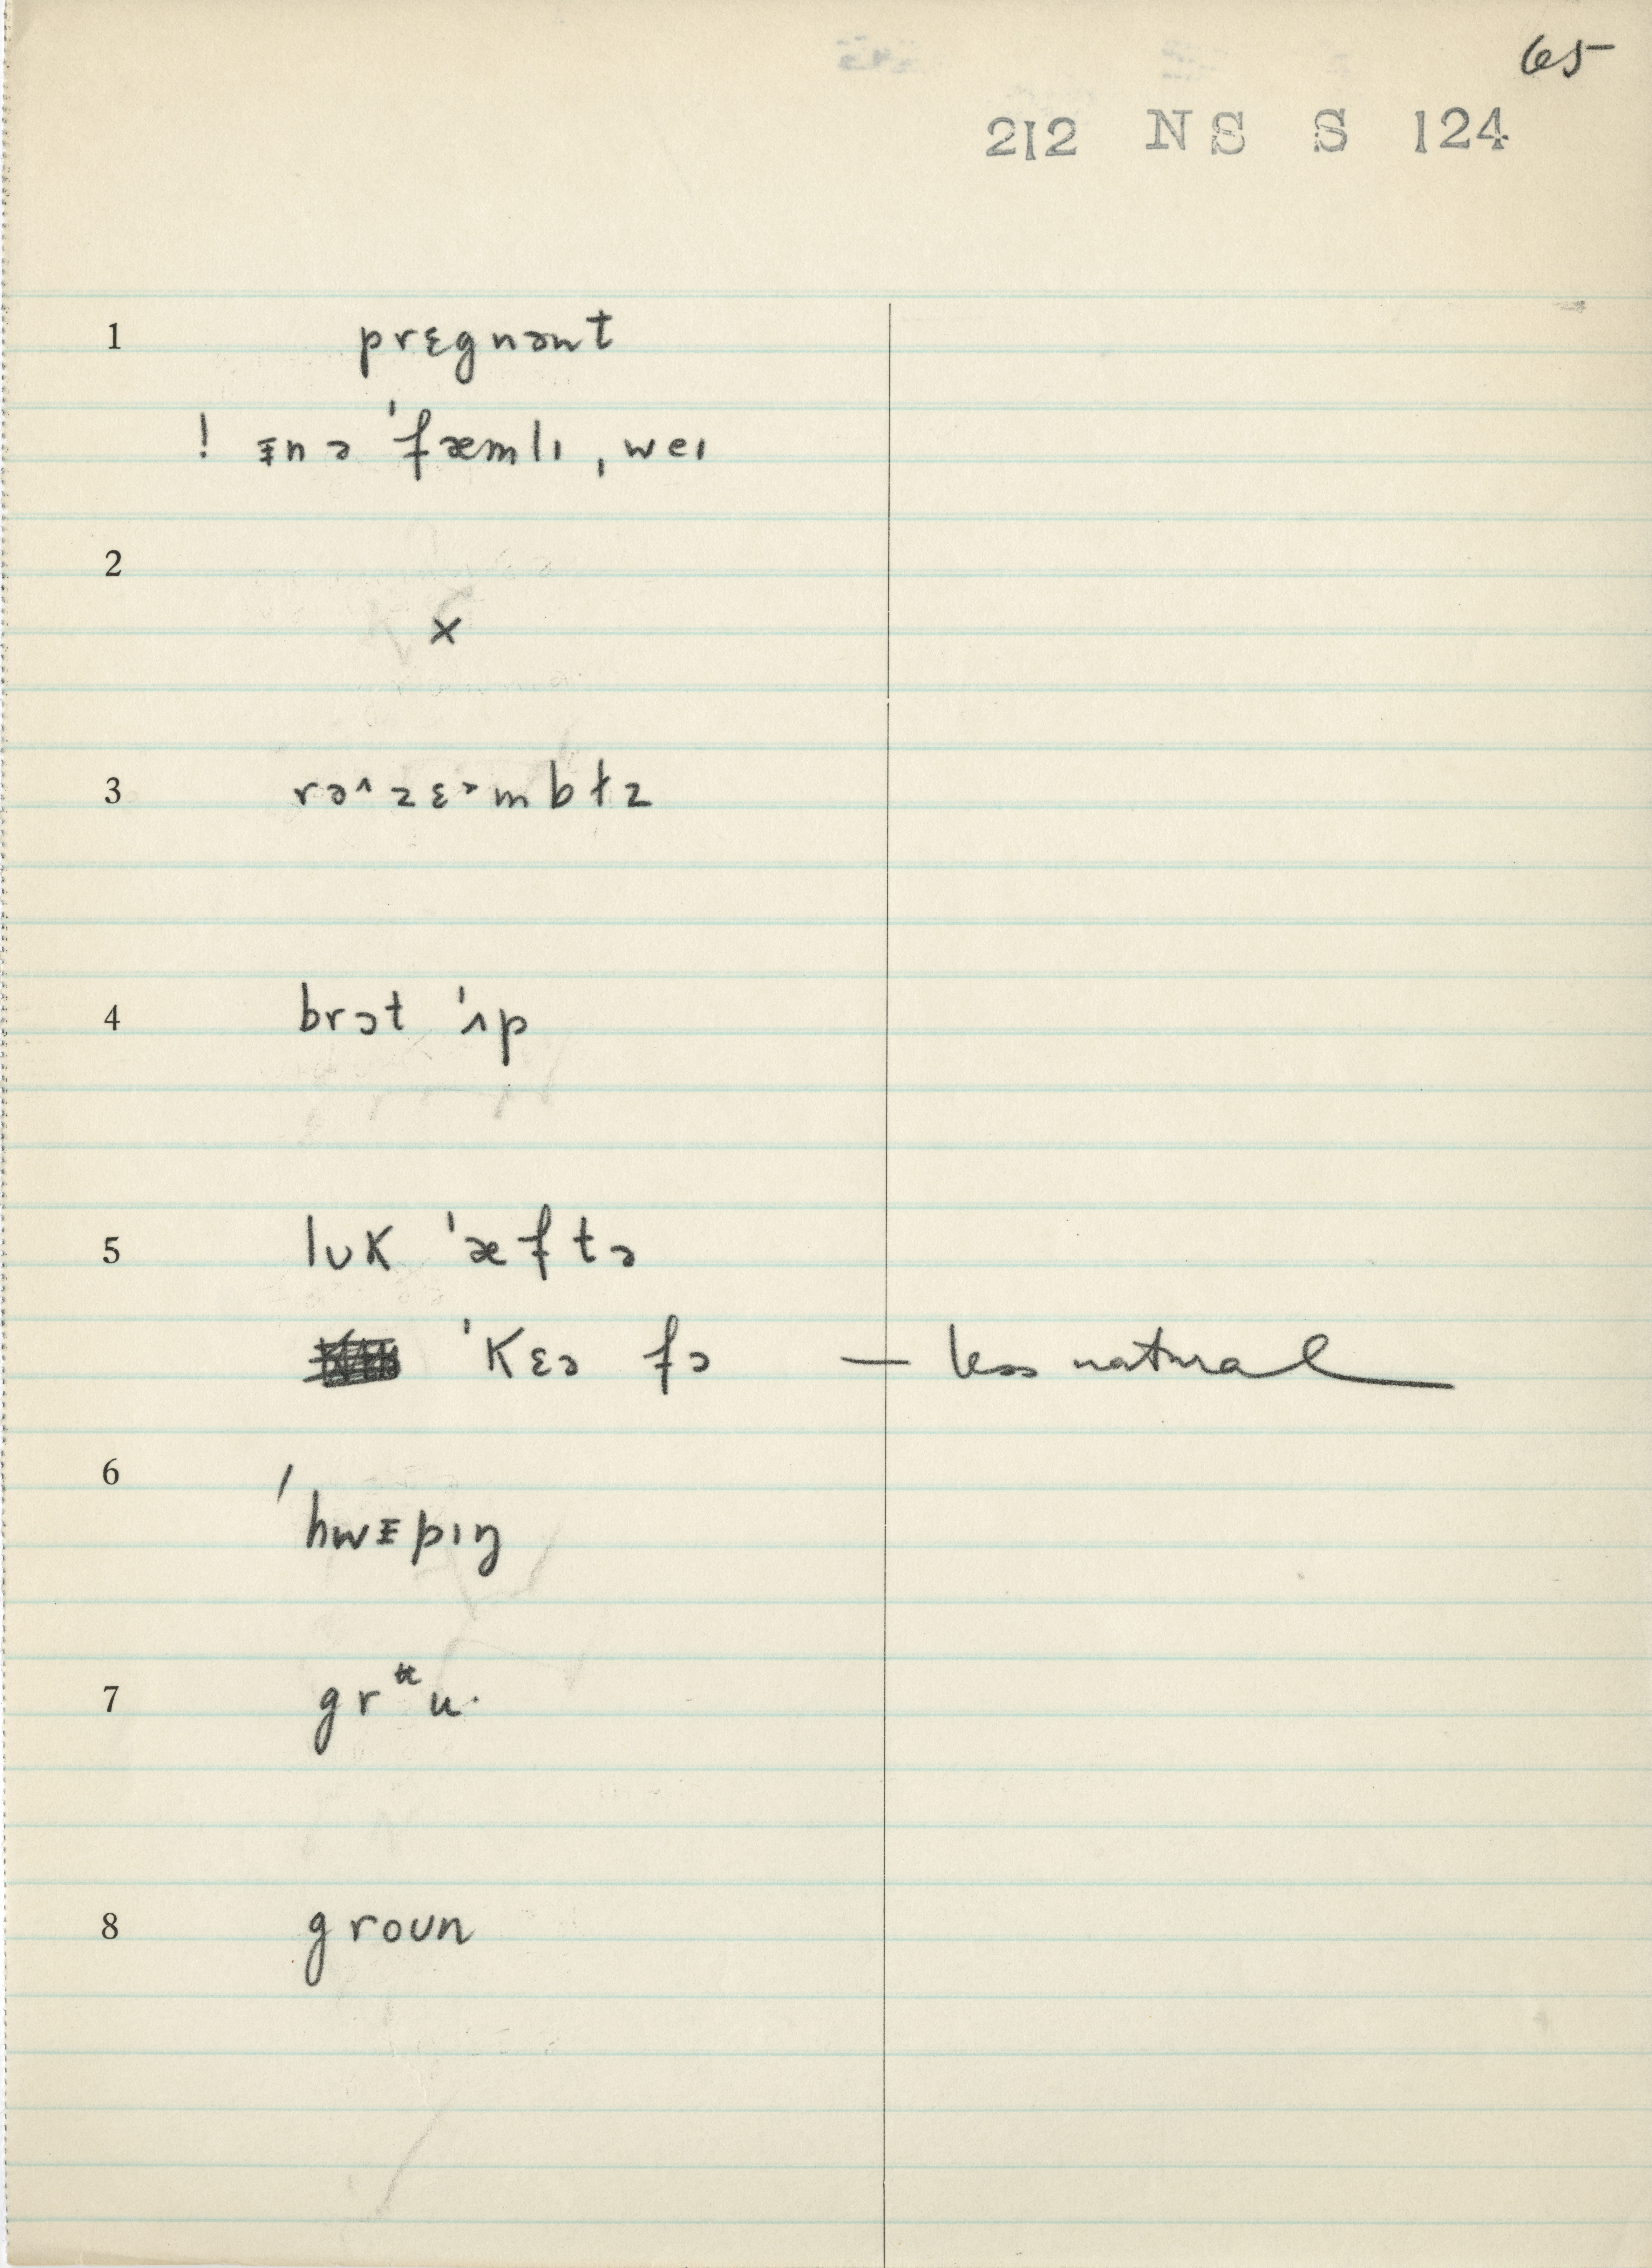 65
212 NS S 124
1 prɛgnənt
! ᵻn ə ˈfæmlɪ ˌweɪ
2 ×
3 rə^zɛ˃mbɫz
4 brɔt ˈʌp
5 lʊk ˈæftə
ˈkɛə fə — less natural
6 ˈhwᵻpɪŋ
7 grᵘu·
8 groun